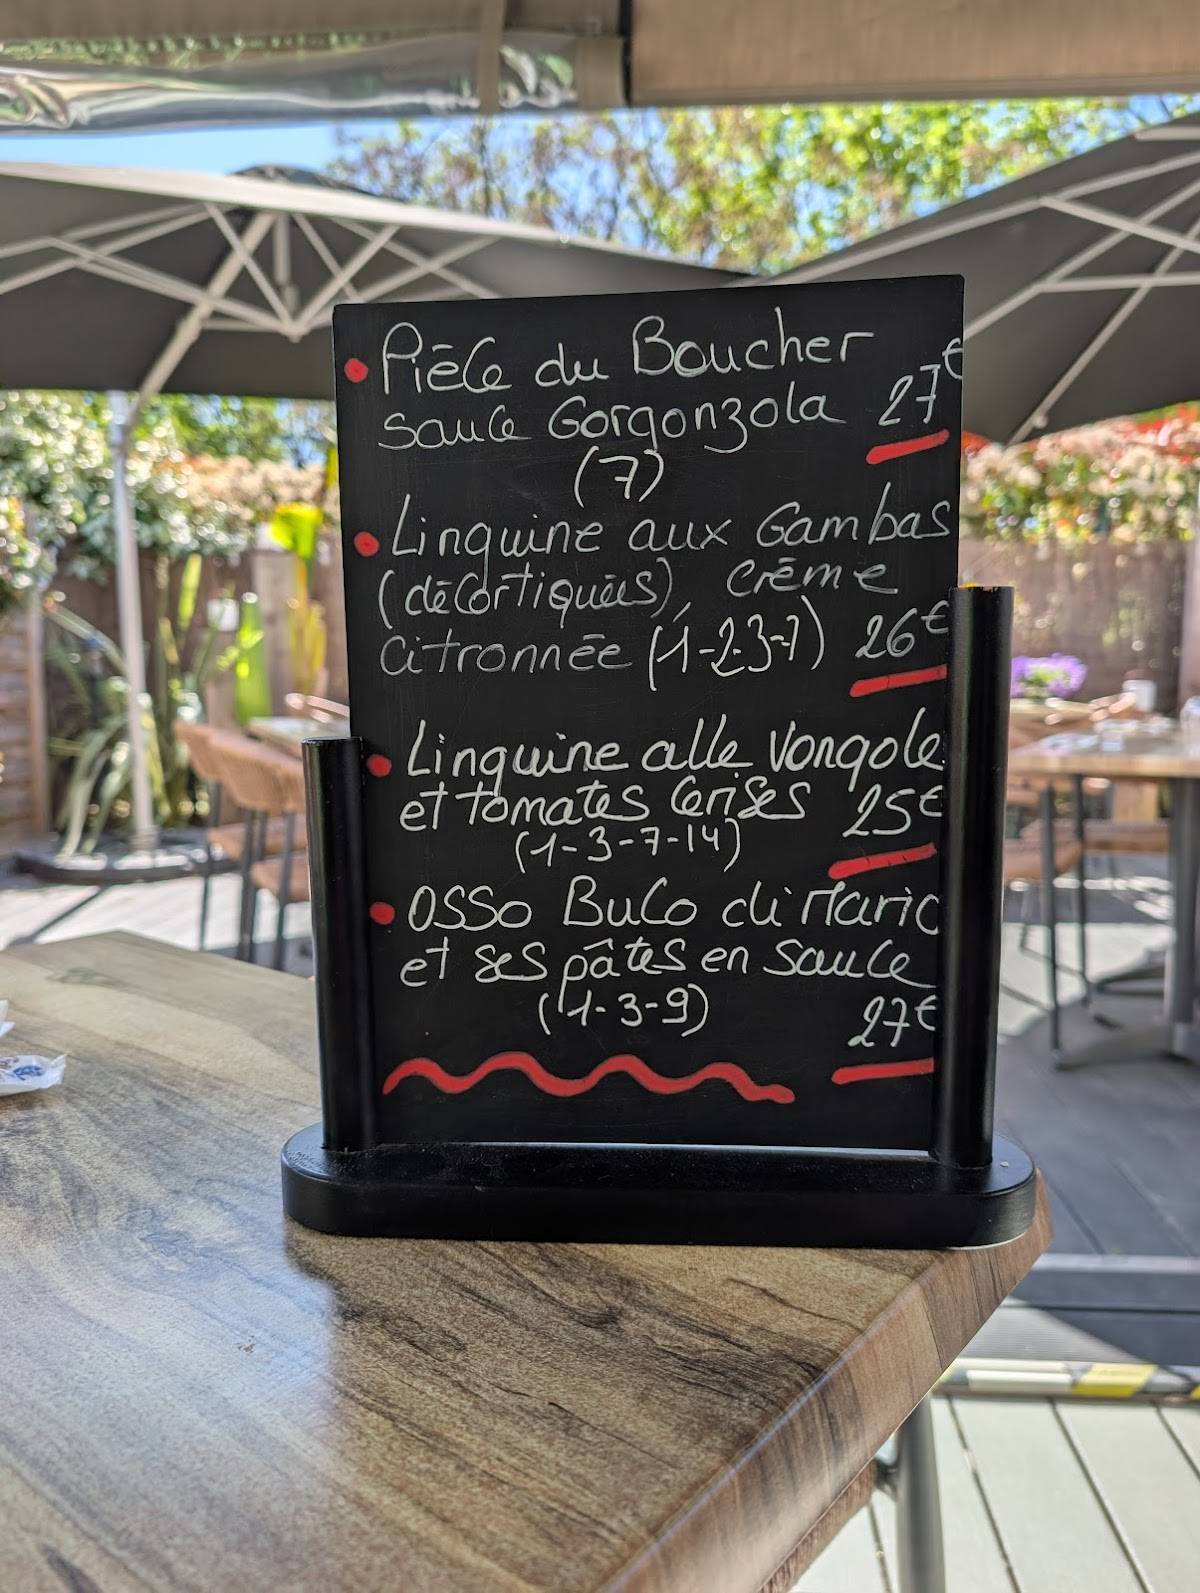 • Pièce du Boucher
sauce Gorgonzola 27€
(7)
• Linguine aux Gambas
(décortiquées), crème
citronnée (1-2-3-7) 26€
• Linguine alle Vongole
et tomates Cerises 25€
(1-3-7-14)
• OSSO BuCo di Mario
et ses pâtes en sauce
(1-3-9) 27€